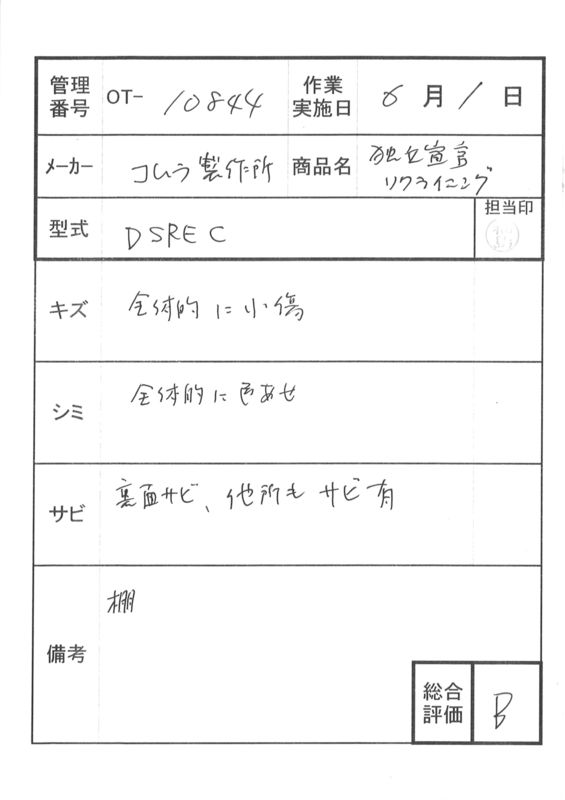 管理番号 OT- 10844 作業実施日 6月1日
メーカー コムラ製作所 商品名 独立宣言
リクライニング
型式 DSREC 担当印
キズ 全体的に小傷
シミ 全体的に色あせ
サビ 裏面サビ、他所もサビ有
備考 棚
総合評価 B